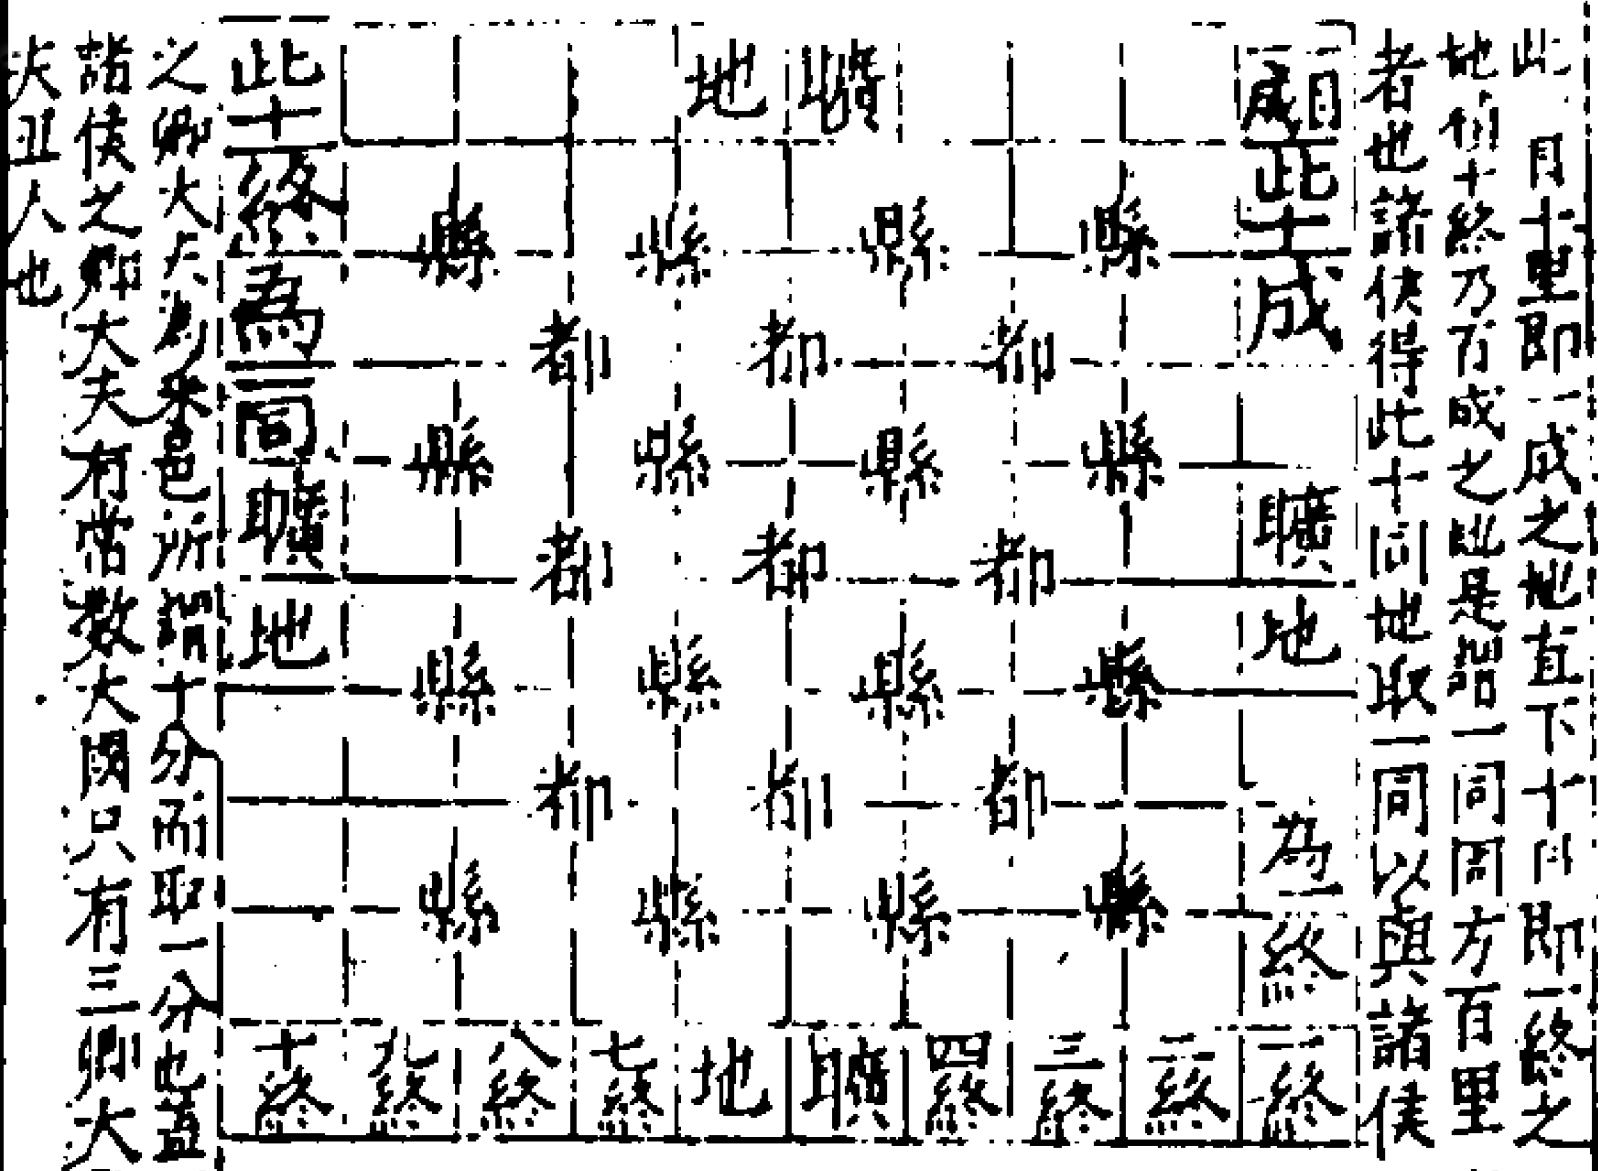 此 同十里即一成之地直下十同即一終之
地積十終乃有成之此是謂一同同方百里
者也諸侯得此十同地取一同以與諸侯
顧此十成
曠地
為一終
曠地
縣 縣 縣 縣
都 都 都
縣 縣 縣 縣
都 都 都
縣 縣 縣 縣
都 都 都
縣 縣 縣 縣
一終 二終 三終 四終 曠地 七終 八終 九終 十終
此十終為一同曠地
之卿大夫為采邑所謂十分而取一分也蓋
諸侯之卿大夫有常數大國只有三卿大
夫五人也